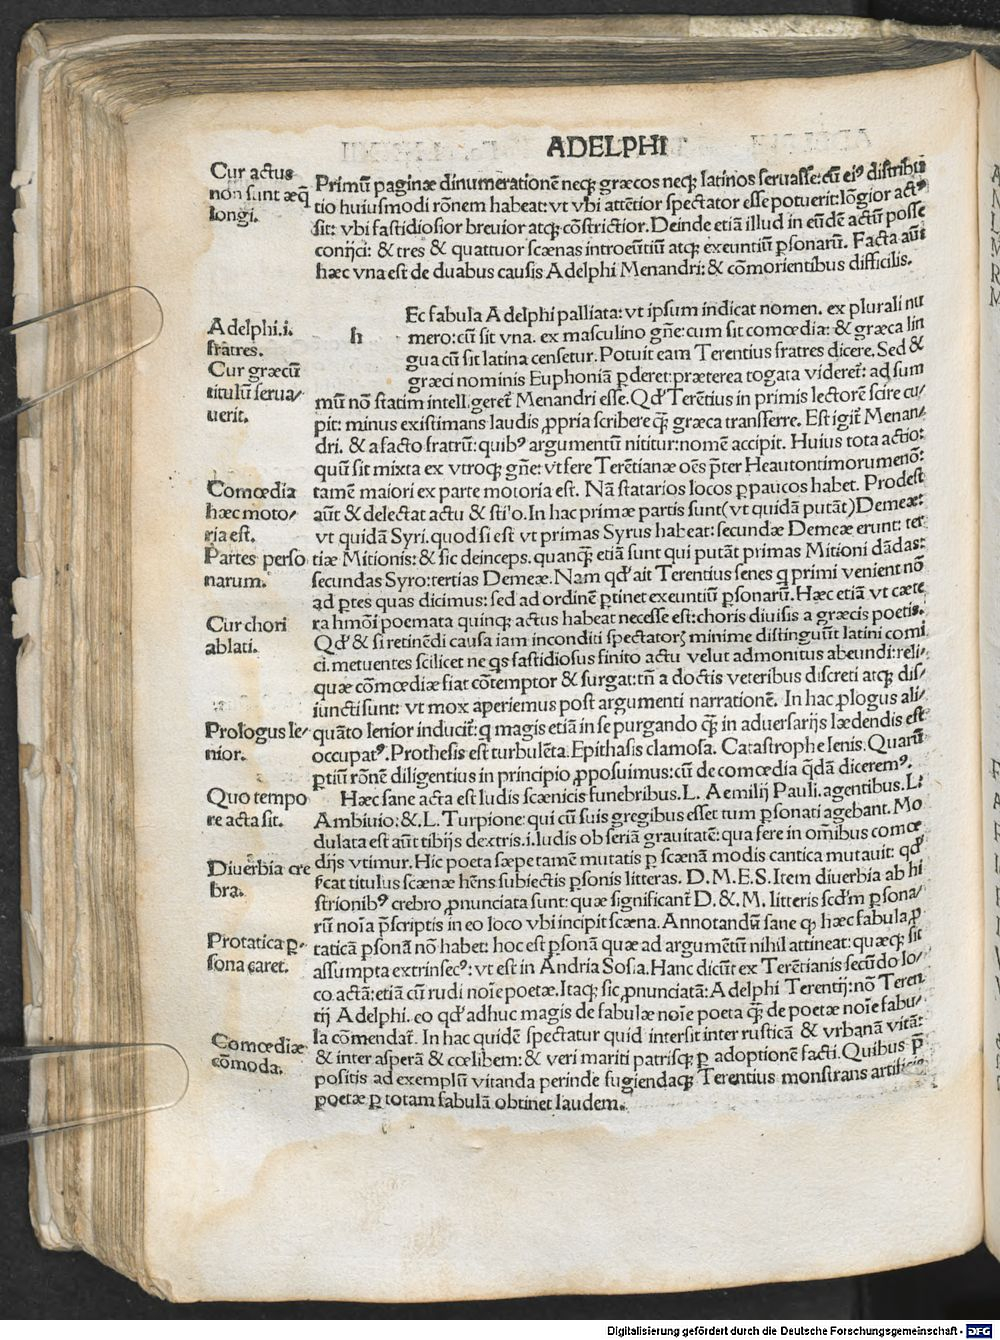 ADELPHI
Cur actus
non sunt æq̃
longi.
Primũ paginæ dinumerationẽ neqꝫ græcos neqꝫ latinos seruasse: cũ eiꝰ distribũ
tio huiusmodi rõnem habeat: vt vbi attẽtior spectator esse potuerit: lõgior actꝰ
sit: vbi fastidiosior breuior atqꝫ cõstrictior. Deinde etiã illud in eũdẽ actũ posse
conijci: & tres & quattuor scænas introeũtiũ atqꝫ exeuntiũ ꝑsonarũ. Facta aũt
hæc vna est de duabus causis Adelphi Menandri: & cõmorientibus difficilis.
Adelphi.i.
fratres.
Cur græcũ
titulũ serua/
uerit.
h Ec fabula Adelphi palliata: vt ipsum indicat nomen. ex plurali nu
mero: cũ sit vna. ex masculino gñe: cum sit comœdia: & græca lin
gua cũ sit latina censetur. Potuit eam Terentius fratres dicere. Sed &
græci nominis Euphoniã ꝑderet: præterea togata videret̃: ad sum
mũ nõ statim intell.geret̃ Menandri esse. Qđ Terẽtius in primis lectorẽ scire cu/
pit: minus existimans laudis ꝓpria scribere qꝫ græca transferre. Est igit̃ Menan/
dri. & a facto fratrũ: quibꝰ argumentũ nititur: nomẽ accipit. Huius tota actio:
quũ sit mixta ex vtroqꝫ gñe: vt fere Terẽtianæ oẽs p̃ter Heautontimorumenõ:
Comœdia
hæc moto/
ria est.
tamẽ maiori ex parte motoria est. Nã statarios locos ꝑpaucos habet. Prodest
aũt & delectat actu & sti'o. In hac primæ partis sunt (vt quidã putãt) Demeæ:
vt quidã Syri. quod si est vt primas Syrus habeat: secundæ Demeæ erunt: ter
Partes perso
narum.
tiæ Mitionis: & sic deinceps. quanqꝫ̃ etiã sunt qui putãt primas Mitioni dãdas:
secundas Syro: tertias Demeæ. Nam qđ ait Terentius senes q primi venient nõ
ad ꝑtes quas dicimus: sed ad ordinẽ ꝑtinet exeuntiũ ꝑsonarũ. Hæc etiã vt cæte
Cur chori
ablati.
ra hmõi poemata quinqꝫ actus habeat necesse est: choris diuisis a græcis poetis.
Qđ & si retinẽdi causa iam inconditi spectatorꝫ minime distinguũt latini comi
ci. metuentes scilicet ne qs fastidiosus finito actu velut admonitus abeundi: reli/
quæ cõmœdiæ fiat cõtemptor & surgat: tñ a doctis veteribus discreti atqꝫ dis/
iuncti sunt: vt mox aperiemus post argumenti narrationẽ. In hac ꝓlogus ali/
Prologus le/
nior.
quãto lenior inducit̃: q magis etiã in se purgando qꝫ̃ in aduersarijs lædendis est
occupatꝰ. Prothesis est turbulẽta. Epithasis clamosa. Catastrophe lenis. Quarũ
ꝑtiũ rõnẽ diligentius in principio ꝓposuimus: cũ de comœdia q̃dã diceremꝰ.
Quo tempo
re acta sit.
Hæc sane acta est ludis scænicis funebribus. L. Aemilij Pauli. agentibus. L.
Ambiuio: &. L. Turpione: qui cũ suis gregibus esset tum ꝑsonati agebant. Mo
dulata est aũt tibijs dextris .i. ludis ob seriã grauitatẽ: qua fere in om̃ibus comœ
Diuerbia cre
bra.
dijs vtimur. Hic poeta sæpe tamẽ mutatis ꝑ scænã modis cantica mutauit: qđ
titulus scænæ hẽns subiectis ꝑsonis litteras. D.M.E.S. Item diuerbia ab hi
strionibꝰ crebro ꝓnunciata sunt: quæ significant̃ D. &. M. litteris scđm ꝑsona/
rũ noĩa p̃scriptis in eo loco vbi incipit scæna. Annotandũ sane ꝙ hæc fabula ꝓ
Protatica ꝑ-
sona caret.
taticã ꝑsonã nõ habet: hoc est ꝑsonã quæ ad argumẽtũ nihil attineat: quæqꝫ sit
assumpta extrinsecꝰ: vt est in Andria Sosia. Hanc dicũt ex Terẽtianis secũdo lo/
co actã: etiã cũ rudi noĩe poetæ. Itaqꝫ sic ꝓnunciatã: Adelphi Terentij: nõ Teren
tij Adelphi. eo qđ adhuc magis de fabulæ noĩe poeta qꝫ̃ de poetæ noĩe fabu/
la cõmendat̃. In hac quidẽ spectatur quid intersit inter rusticã & vrbanã vitã:
Comœdiæ
cõmoda.
& inter asperã & cœlibem: & veri mariti patrisqꝫ ꝑ adoptionẽ facti. Quibus p̃
positis ad exemplũ vitanda perinde fugiendaqꝫ Terentius monstrans
poetæ ꝑ totam fabulã obtinet laudem.
Digitalisierung gefördert durch die Deutsche Forschungsgemeinschaft - DFG